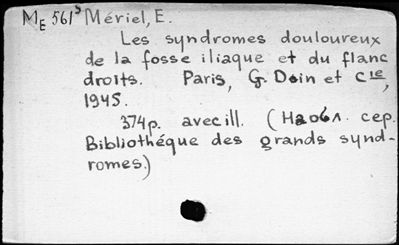 ME 561⁵ Mériel, E.
Les syndromes douloureux
de la fosse iliaque et du flanc
droits. Paris, G. Doin et Cie,
1945.
374p. avec ill. (На обл. сер.
Bibliothéque des grands synd-
romes.)